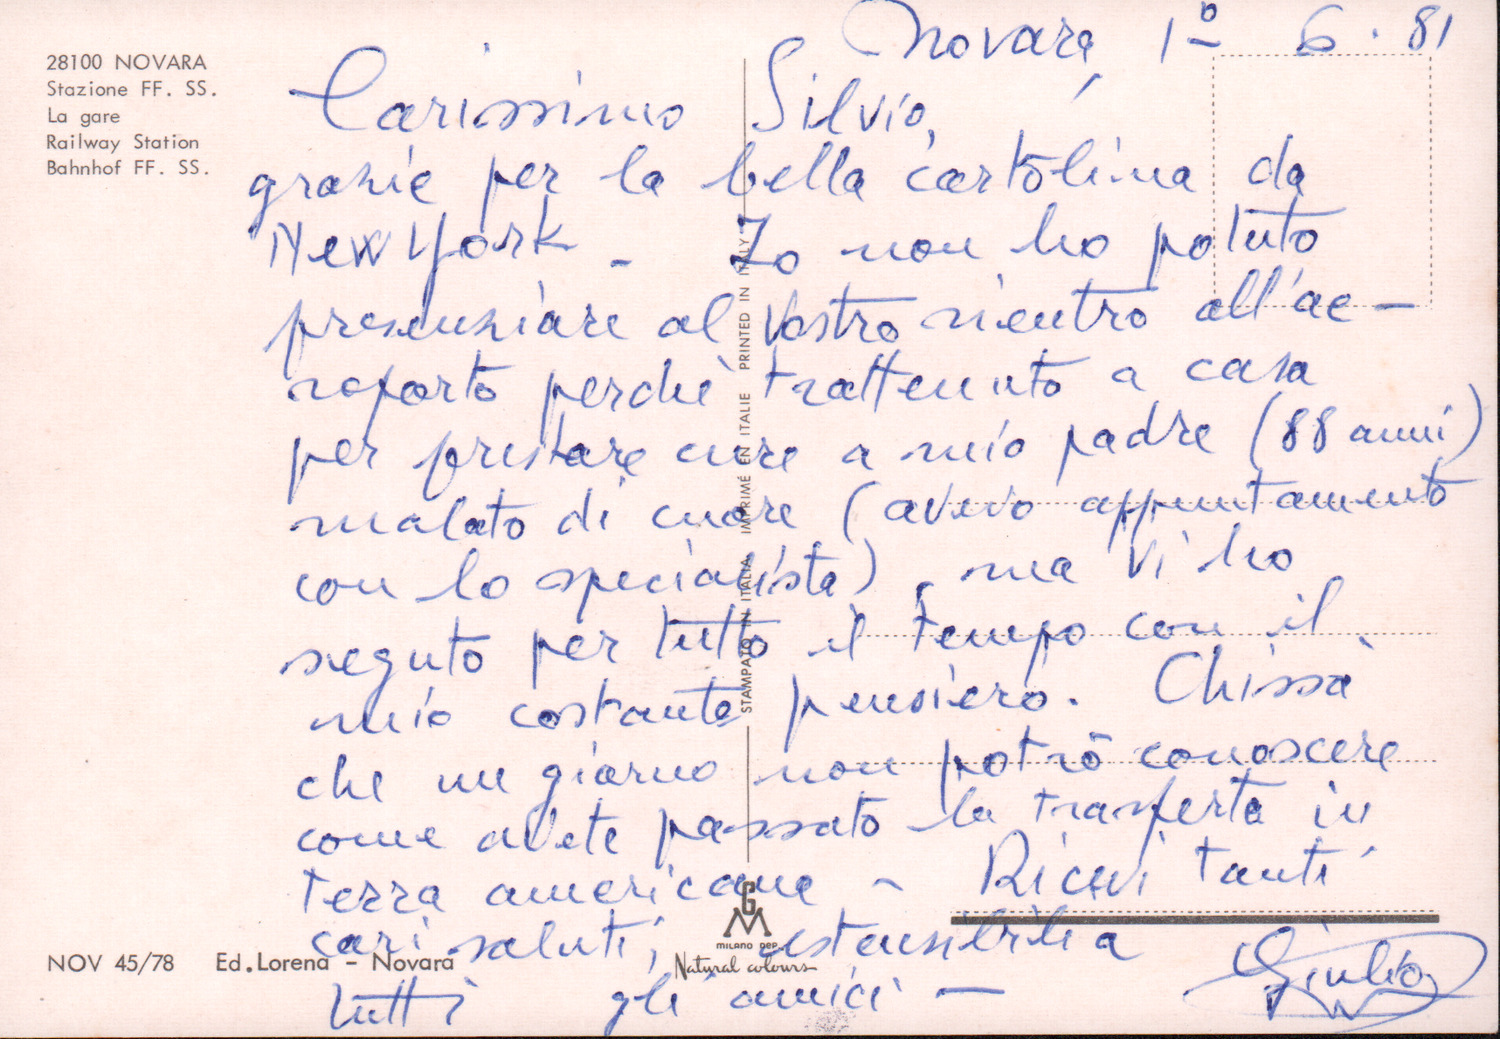 28100 NOVARA
Stazione FF. SS.
La gare
Railway Station
Bahnhof FF. SS.
Novara, 1º 6.81
Carissimo Silvio,
grazie per la bella cartolina da
New York - Io non ho potuto
presenziare al vostro rientro all'ae-
roporto perchè trattenuto a casa
per prestare cure a mio padre (88 anni)
malato di cuore (avevo appuntamento
con lo specialista), ma vi ho
seguto per tutto il tempo con il
mio costante pensiero. Chissà
che un giorno non potrò conoscere
come avete passato la trasferta in
terra americana - Ricevi tanti
cari saluti, estensibili a
tutti gli amici -
Giulio
STAMPATO IN ITALIA IMPRIMÉ EN ITALIE PRINTED IN ITALY
GM
MILANO DEP.
Natural colours
NOV 45/78 Ed.Lorena - Novara